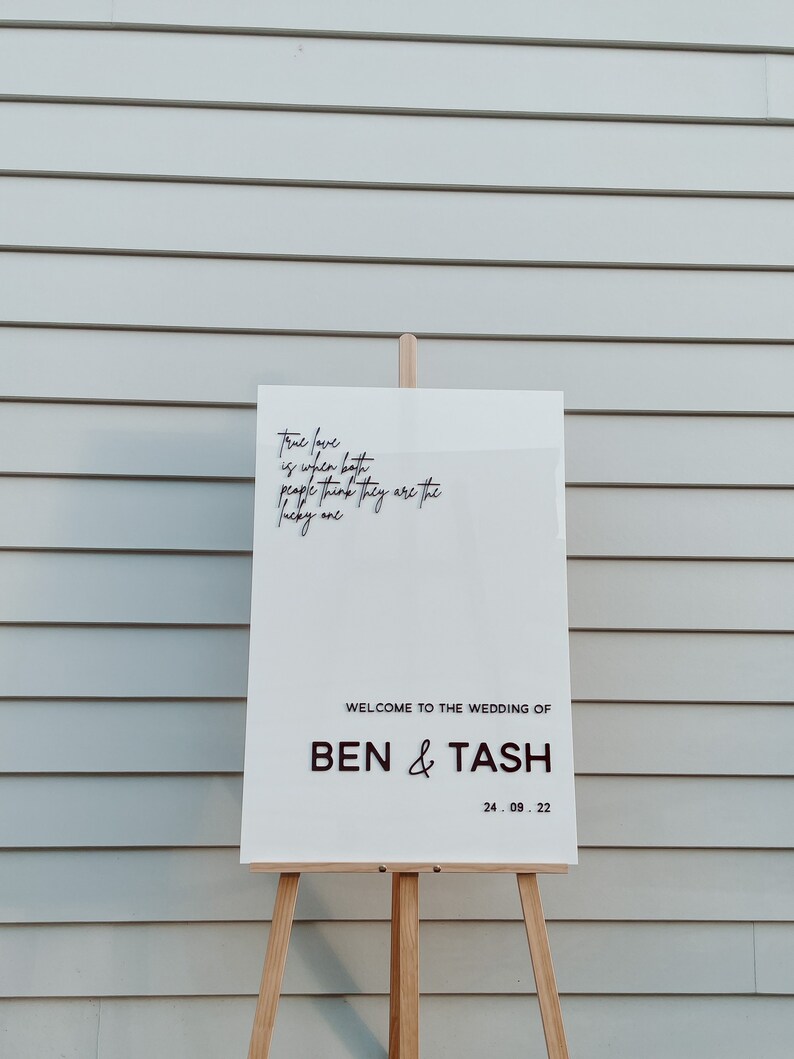 true love
is when both
people think they are the
lucky one
WELCOME TO THE WEDDING OF
BEN & TASH
24 . 09 . 22